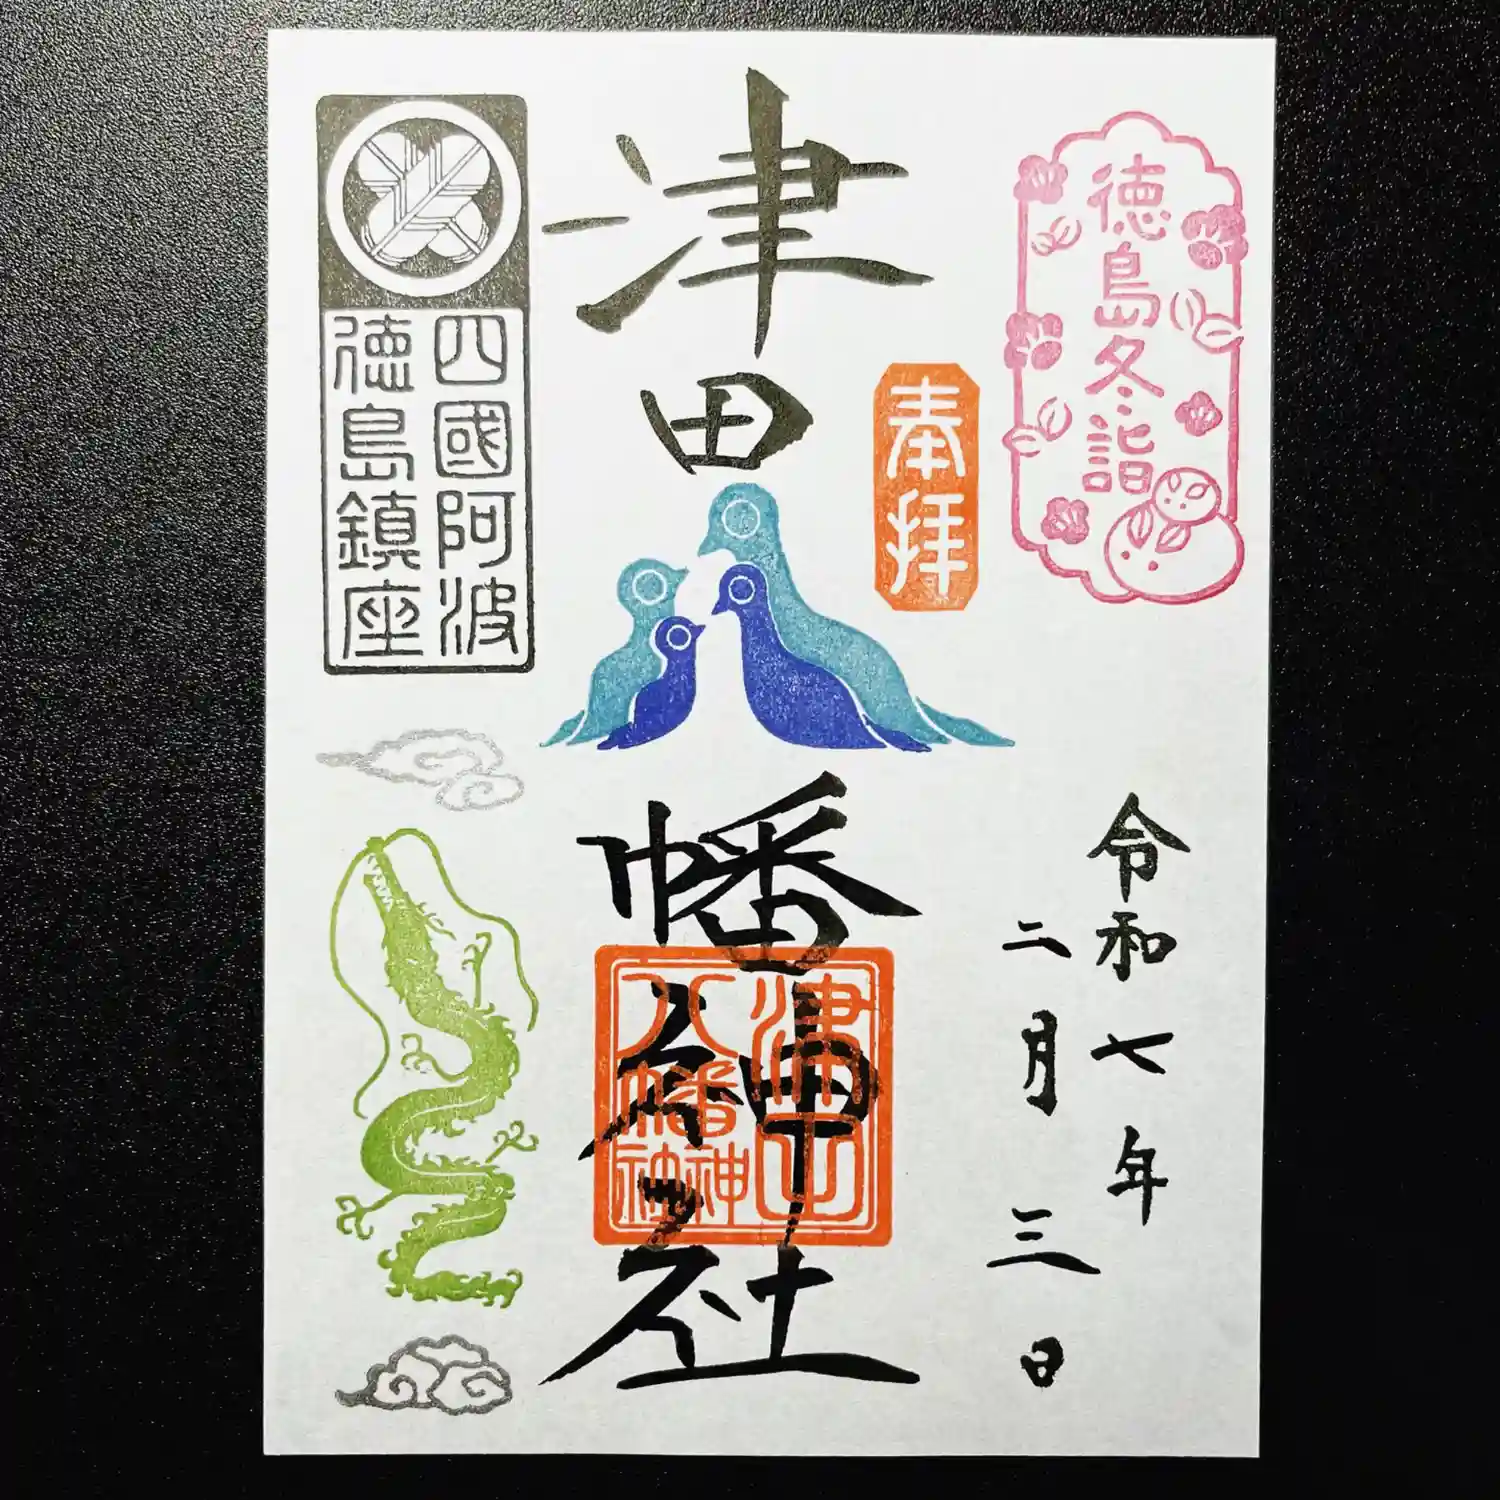 徳島冬詣
奉拝
令和七年
二月三日
津田八幡神社
津田
八幡
神社
四國阿波
徳島鎮座